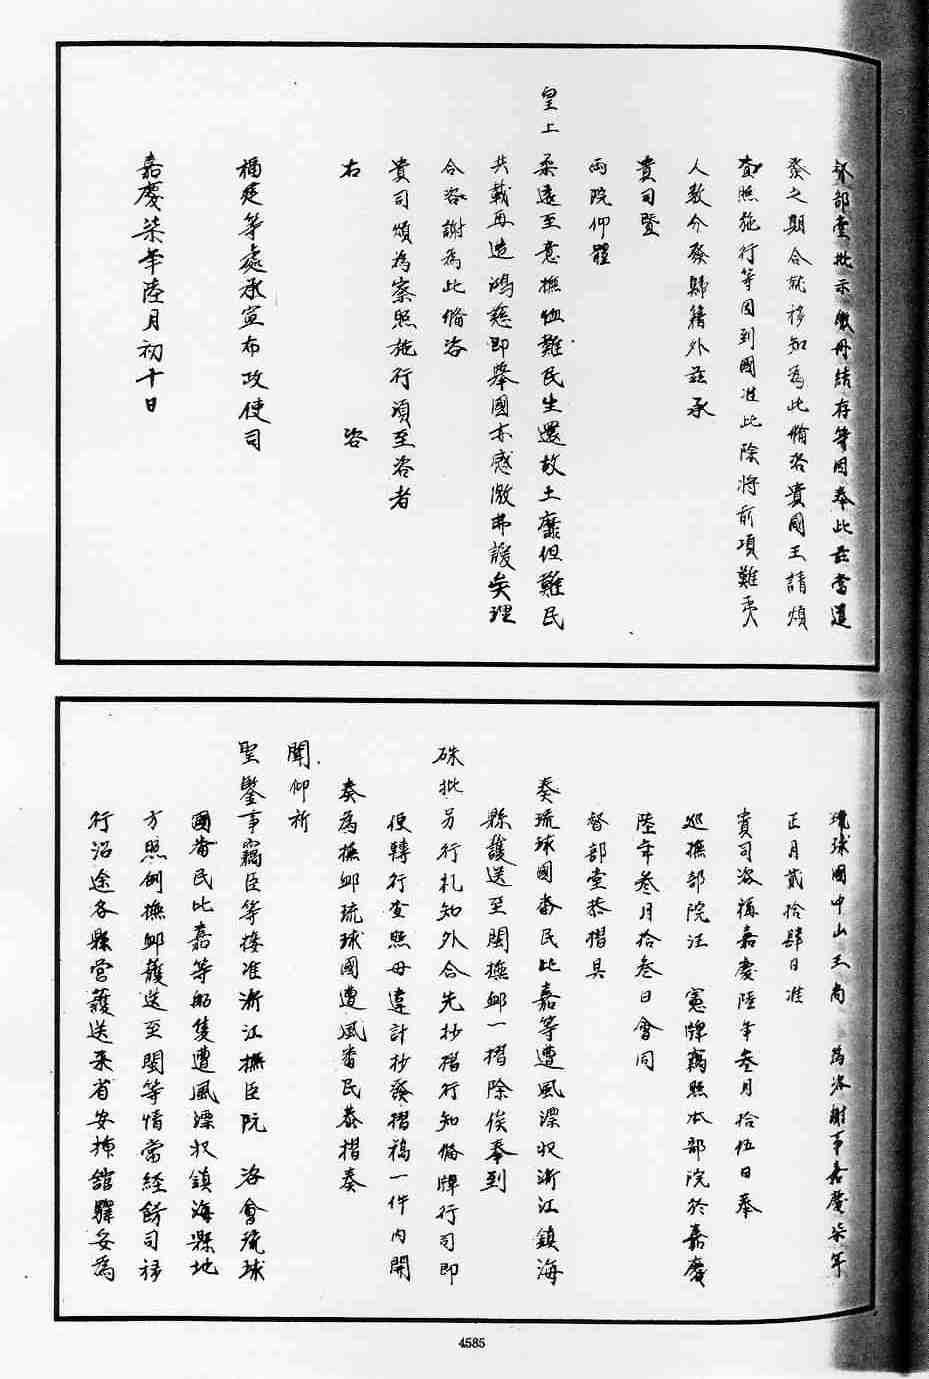 督部堂批示繳冊結存等因奉此玆當遣
發之期合就移知為此備咨貴國王請煩
查照施行等因到國准此除將前項難夷
人數分發歸籍外玆承
貴司暨
兩院仰體
皇上柔遠至意撫恤難民生還故土靡但難民
共載再造鴻慈即舉國亦感激弗諼矣理
合咨謝為此備咨
貴司煩為察照施行須至咨者
右 咨
福建等處承宣布政使司
嘉慶柒年陸月初十日
琉球國中山王尚 為咨謝事嘉慶柒年
正月貳拾肆日准
貴司咨稱嘉慶陸年叁月拾伍日奉
巡撫部院汪 憲牌竊照本部院於嘉慶
陸年叁月拾叁日會同
督部堂恭摺具
奏琉球國畨民比嘉等遭風漂收浙江鎮海
縣護送至閩撫卹一摺除俟奉到
硃批另行札知外合先抄摺行知備牌行司即
便轉行查照毋違計抄發摺稿一件內開
奏為撫卹琉球國遭風畨民恭摺奏
聞仰祈
聖鑒事竊臣等接准浙江撫臣阮 咨會琉球
國畨民比嘉等船隻遭風漂收鎮海縣地
方照例撫卹護送至閩等情當經飭司移
行沿途各縣營護送來省安揷舘驛妥為
4585